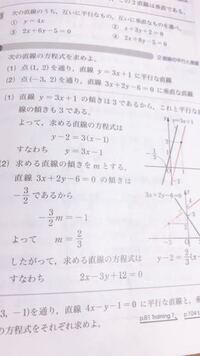 次の直線のうち, 互いに平行なもの, 互いに垂直なものを選べ。
① y=4x
③ 2x+6y-5=0
② x+3y+2=0
④ 2x+8y-5=0
次の直線の方程式を求めよ。
(1) 点(1, 2)を通り, 直線 y=3x+1に平行な直線
(2) 点(-3, 2)を通り, 直線 3x+2y-6=0に垂直な直線
(1) 直線 y=3x+1 の傾きは3であるから, これと平行な
線の傾きも3である。
よって, 求める直線の方程式は
y-2=3(x-1)
すなわち y=3x-1
(2) 求める直線の傾きをmとする。
直線 3x+2y-6=0 の傾きは
-3/2 であるから
-3/2 m=-1
よって m=2/3
したがって, 求める直線の方程式は
すなわち 2x-3y+12=0
3x+2y-6=0
y-2=2/3(x
3, -1)を通り, 直線 4x-y-1=0 に平行な直線と, 垂
の方程式をそれぞれ求めよ。
p.81 Training 7
p.104